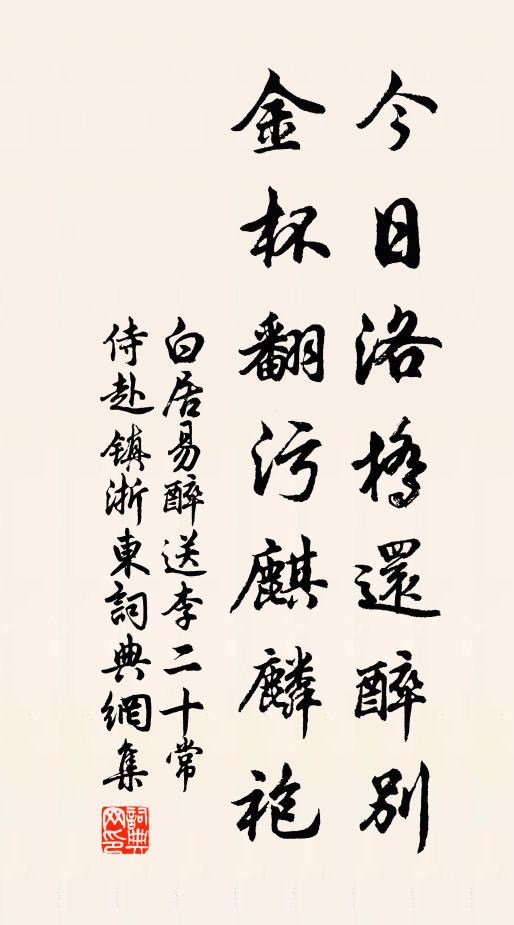 今日洛橋還醉別
金杯翻污麒麟袍
白居易醉送李二十常
侍赴鎮浙東詞典網集
詞典
网印